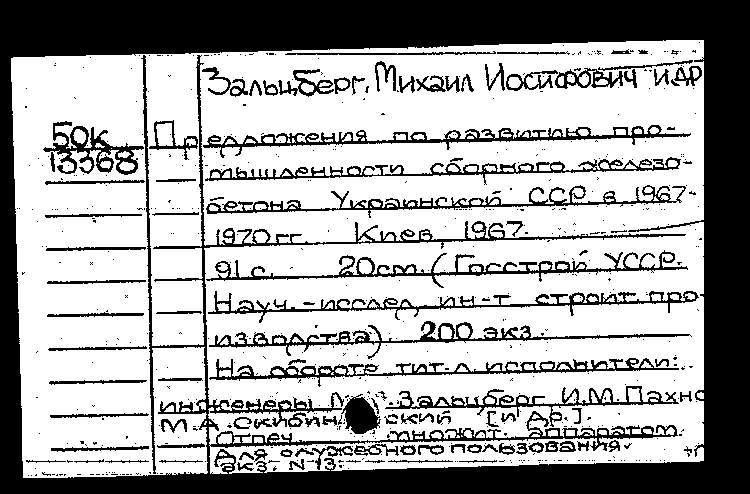 Зальцберг, Михаил Иосифович и др
50к
13368
Предложения по развитию про-
мышленности сборного железо-
бетона Украинской ССР в 1967-
1970 гг. Киев, 1967.
91 с. 20 см. (Госстрой УССР.
Науч.-исслед. ин-т строит. про-
изводства). 200 экз.
На обороте тит. л. исполнители:
инженеры Зальцберг И.М. Пахно
М.А. [и др.].
Отпеч. множит. аппаратом.
Для служебного пользования.
Экз. N 13.